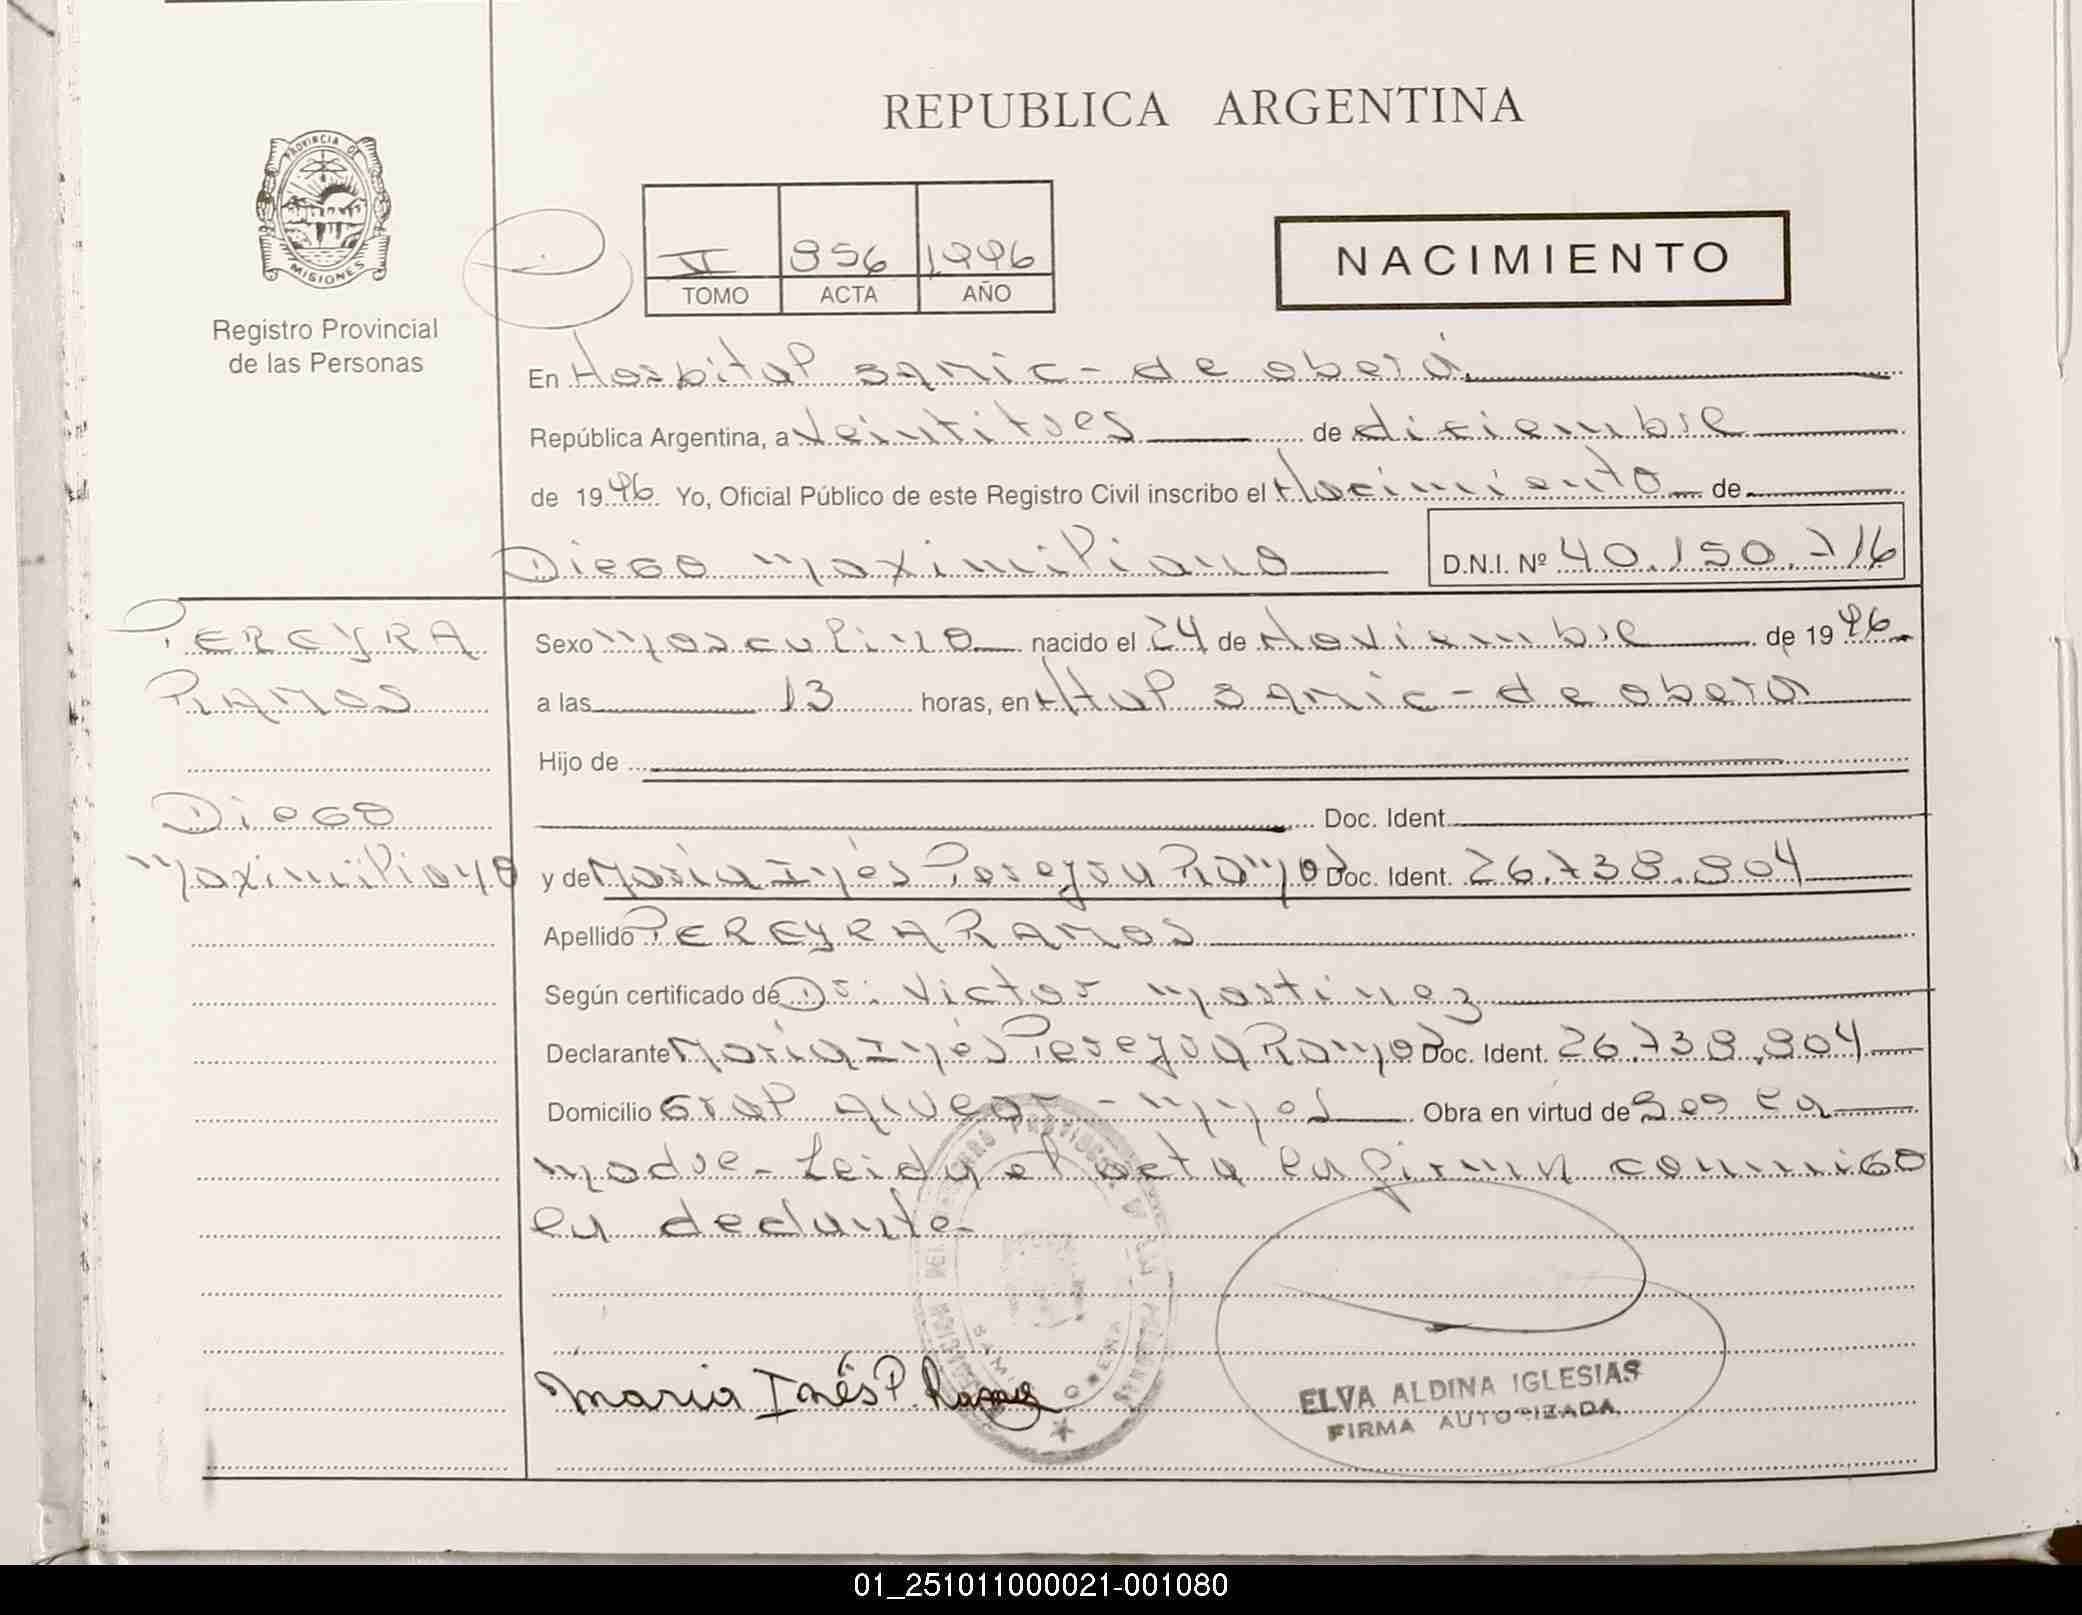 REPUBLICA ARGENTINA
PROVINCIA DE
MISIONES
Registro Provincial
de las Personas
VI 856 1996
TOMO ACTA AÑO
NACIMIENTO
En Hospital samic - de oberá
República Argentina, a veintitres de diciembre
de 1996 Yo, Oficial Público de este Registro Civil inscribo el Nacimiento de
Diego Maximiliano D.N.I. Nº 40.150.716
PEREYRA
RAMOS
Diego
Maximiliano
Sexo Masculino nacido el 24 de Noviembre de 1996
a las 13 horas, en Htal samic - de oberá
Hijo de
Doc. Ident.
y de Maria Inés Pereyra Ramos Doc. Ident. 26.738.804
Apellido PEREYRA RAMOS
Según certificado de Dr. Victor Martinez
Declarante Maria Inés Pereyra Ramos Doc. Ident. 26.738.804
Domicilio Gral alvear - Mnes Obra en virtud de ser la
madre - Leida el acta la firman conmigo
la declante
Maria Inés P. Ramos
ELVA ALDINA IGLESIAS
FIRMA AUTORIZADA
01_251011000021-001080